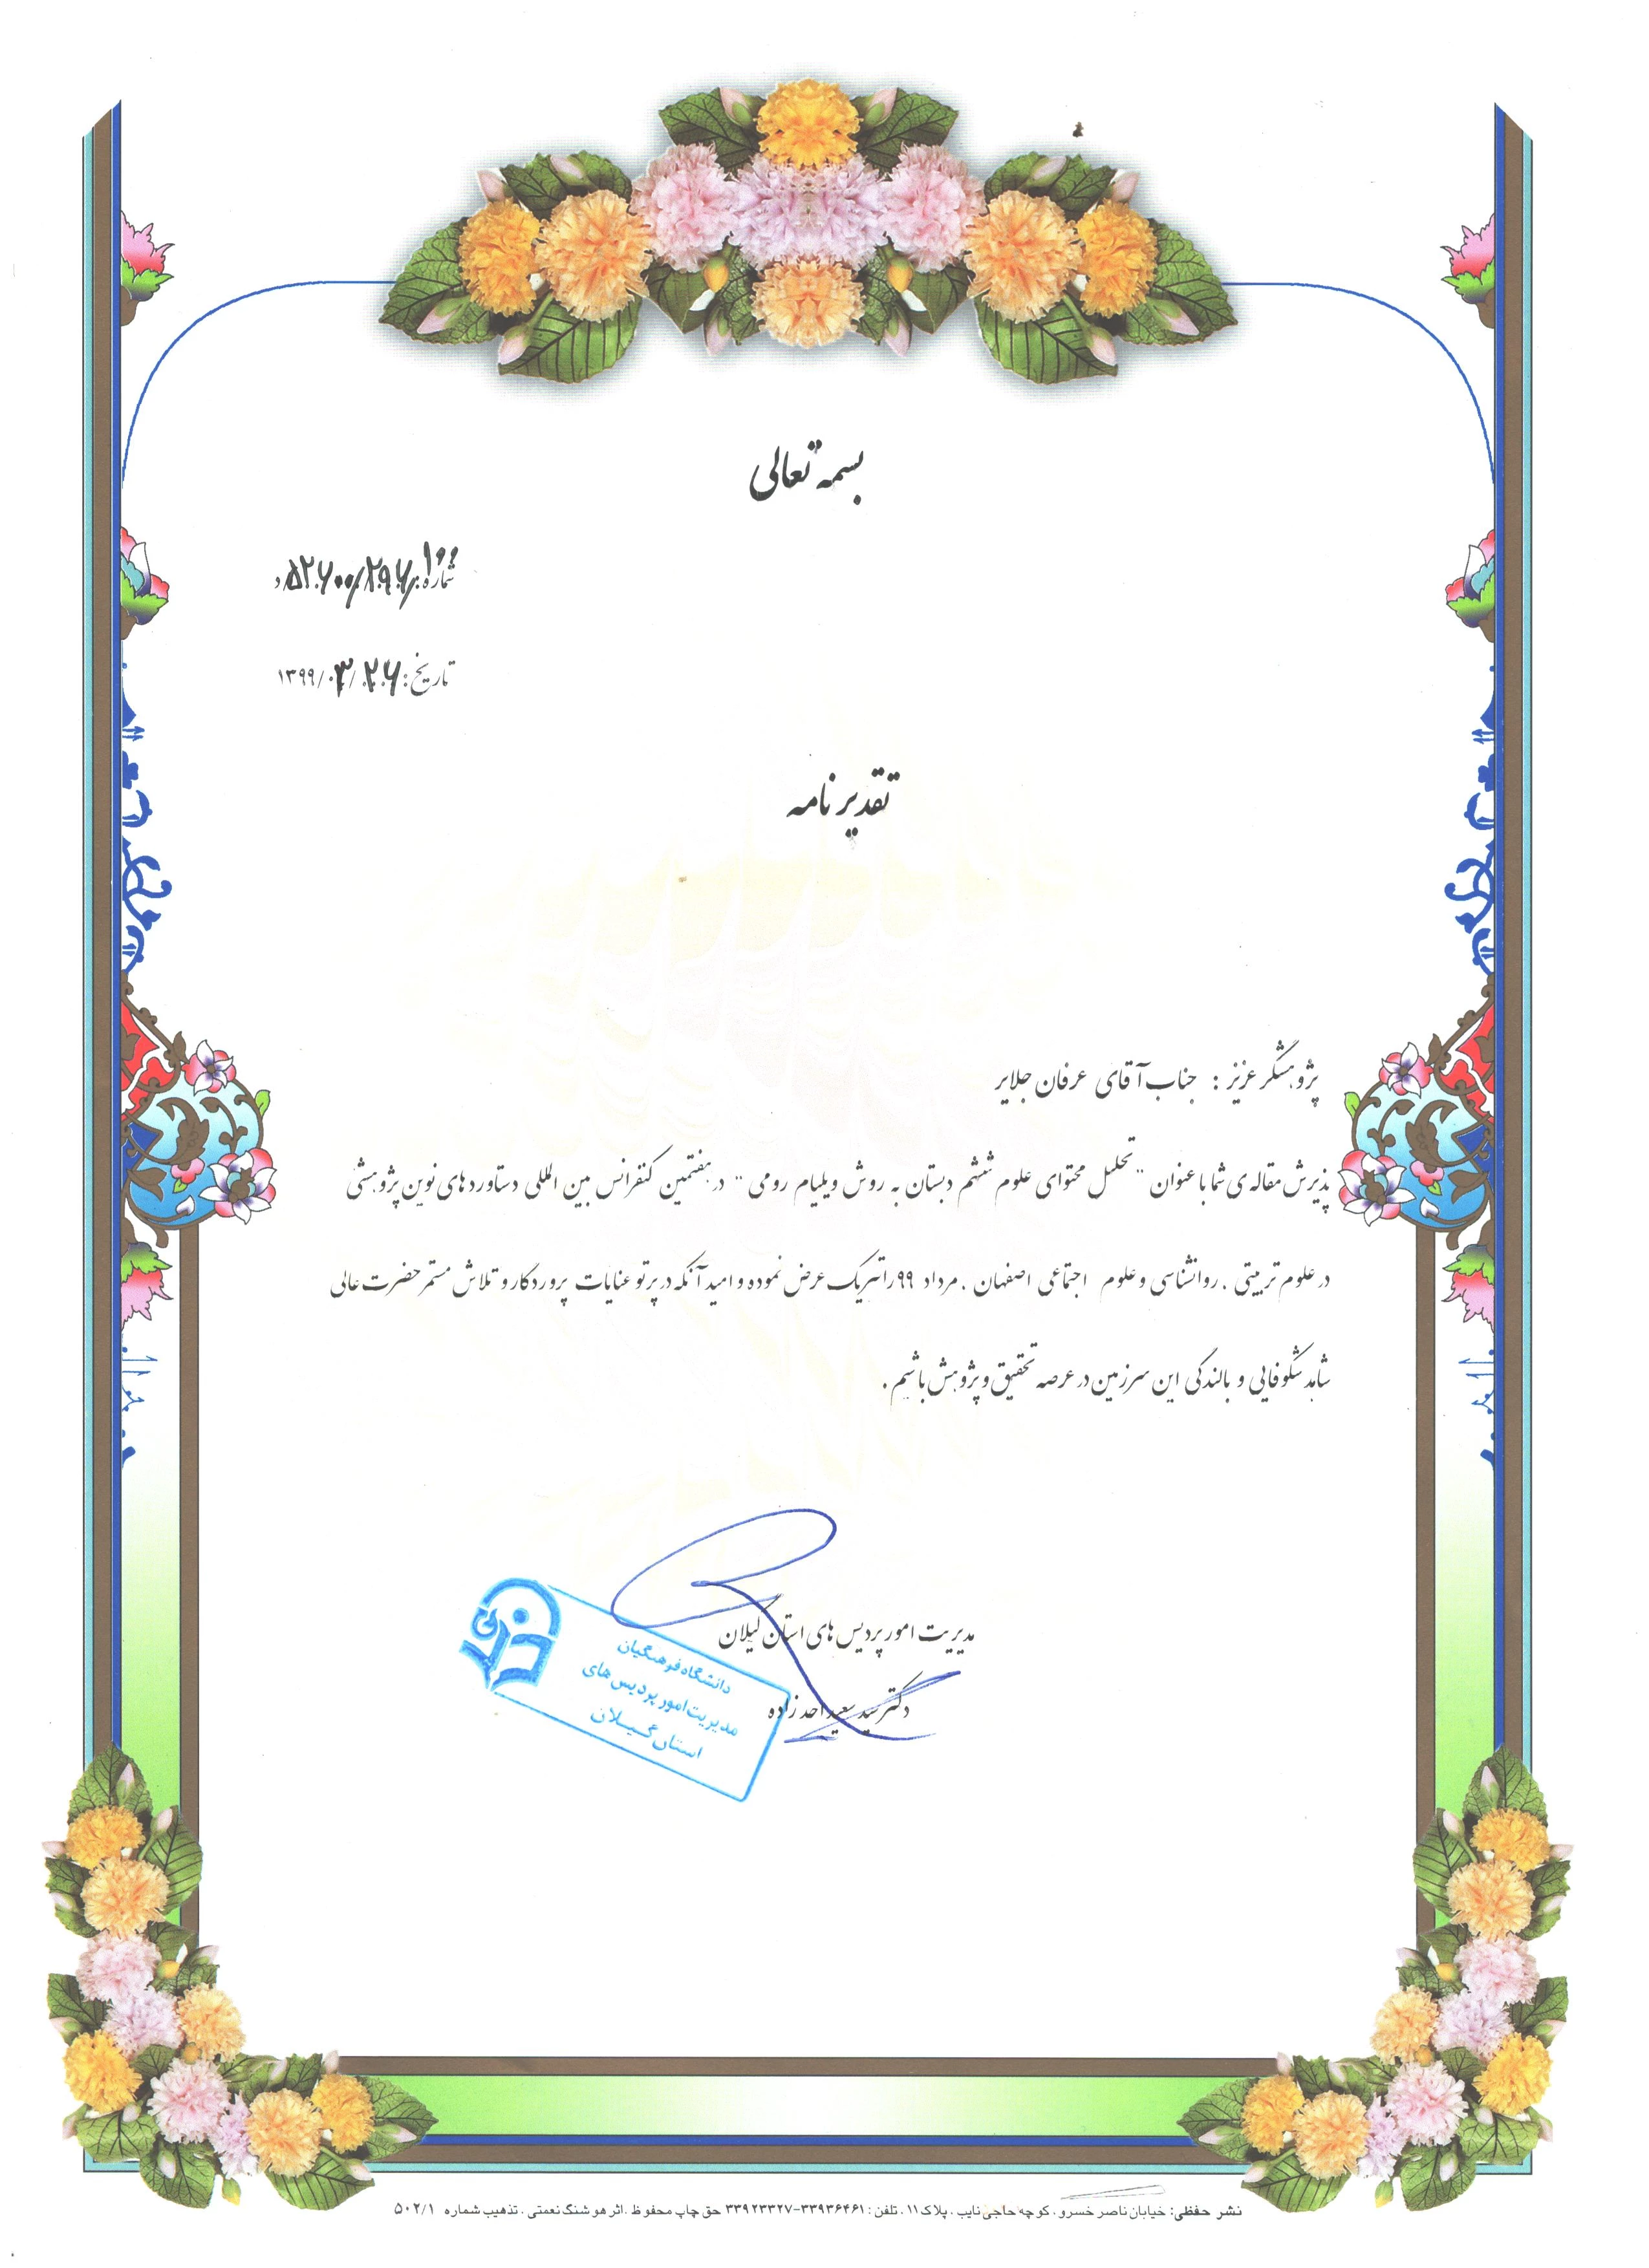 بسمه تعالی
شماره: ۵۲۶۰۰/۲۹۶/۱۰۰/د
تاریخ: ۱۳۹۹/۰۳/۲۶
تقدیر نامه
پژوهشگر عزیز : جناب آقای عرفان جلایر
پذیرش مقاله ی شما با عنوان "تحلیل محتوای علوم ششم دبستان به روش ویلیام رومی" در هفتمین کنفرانس بین المللی دستاورد های نوین پژوهشی
در علوم تربیتی ، روانشناسی و علوم اجتماعی اصفهان ، مرداد ۹۹ را تبریک عرض نموده و امید آنکه در پرتو عنایات پروردگار و تلاش مستمر حضرت عالی
شاهد شکوفایی و بالندگی این سرزمین در عرصه تحقیق و پژوهش باشیم .
مدیریت امور پردیس های استان گیلان
دکتر سید سعید احد زاده
دانشگاه فرهنگیان
مدیریت امور پردیس های
استان گیلان
نشر حفظی: خیابان ناصر خسرو ، کوچه حاجی نایب ، پلاک ۱۱ ، تلفن : ۳۳۹۳۶۴۶۱-۳۳۹۲۳۳۲۷ حق چاپ محفوظ ، اثر هوشنگ نعمتی ، تذهیب شماره ۵۰۲/۱